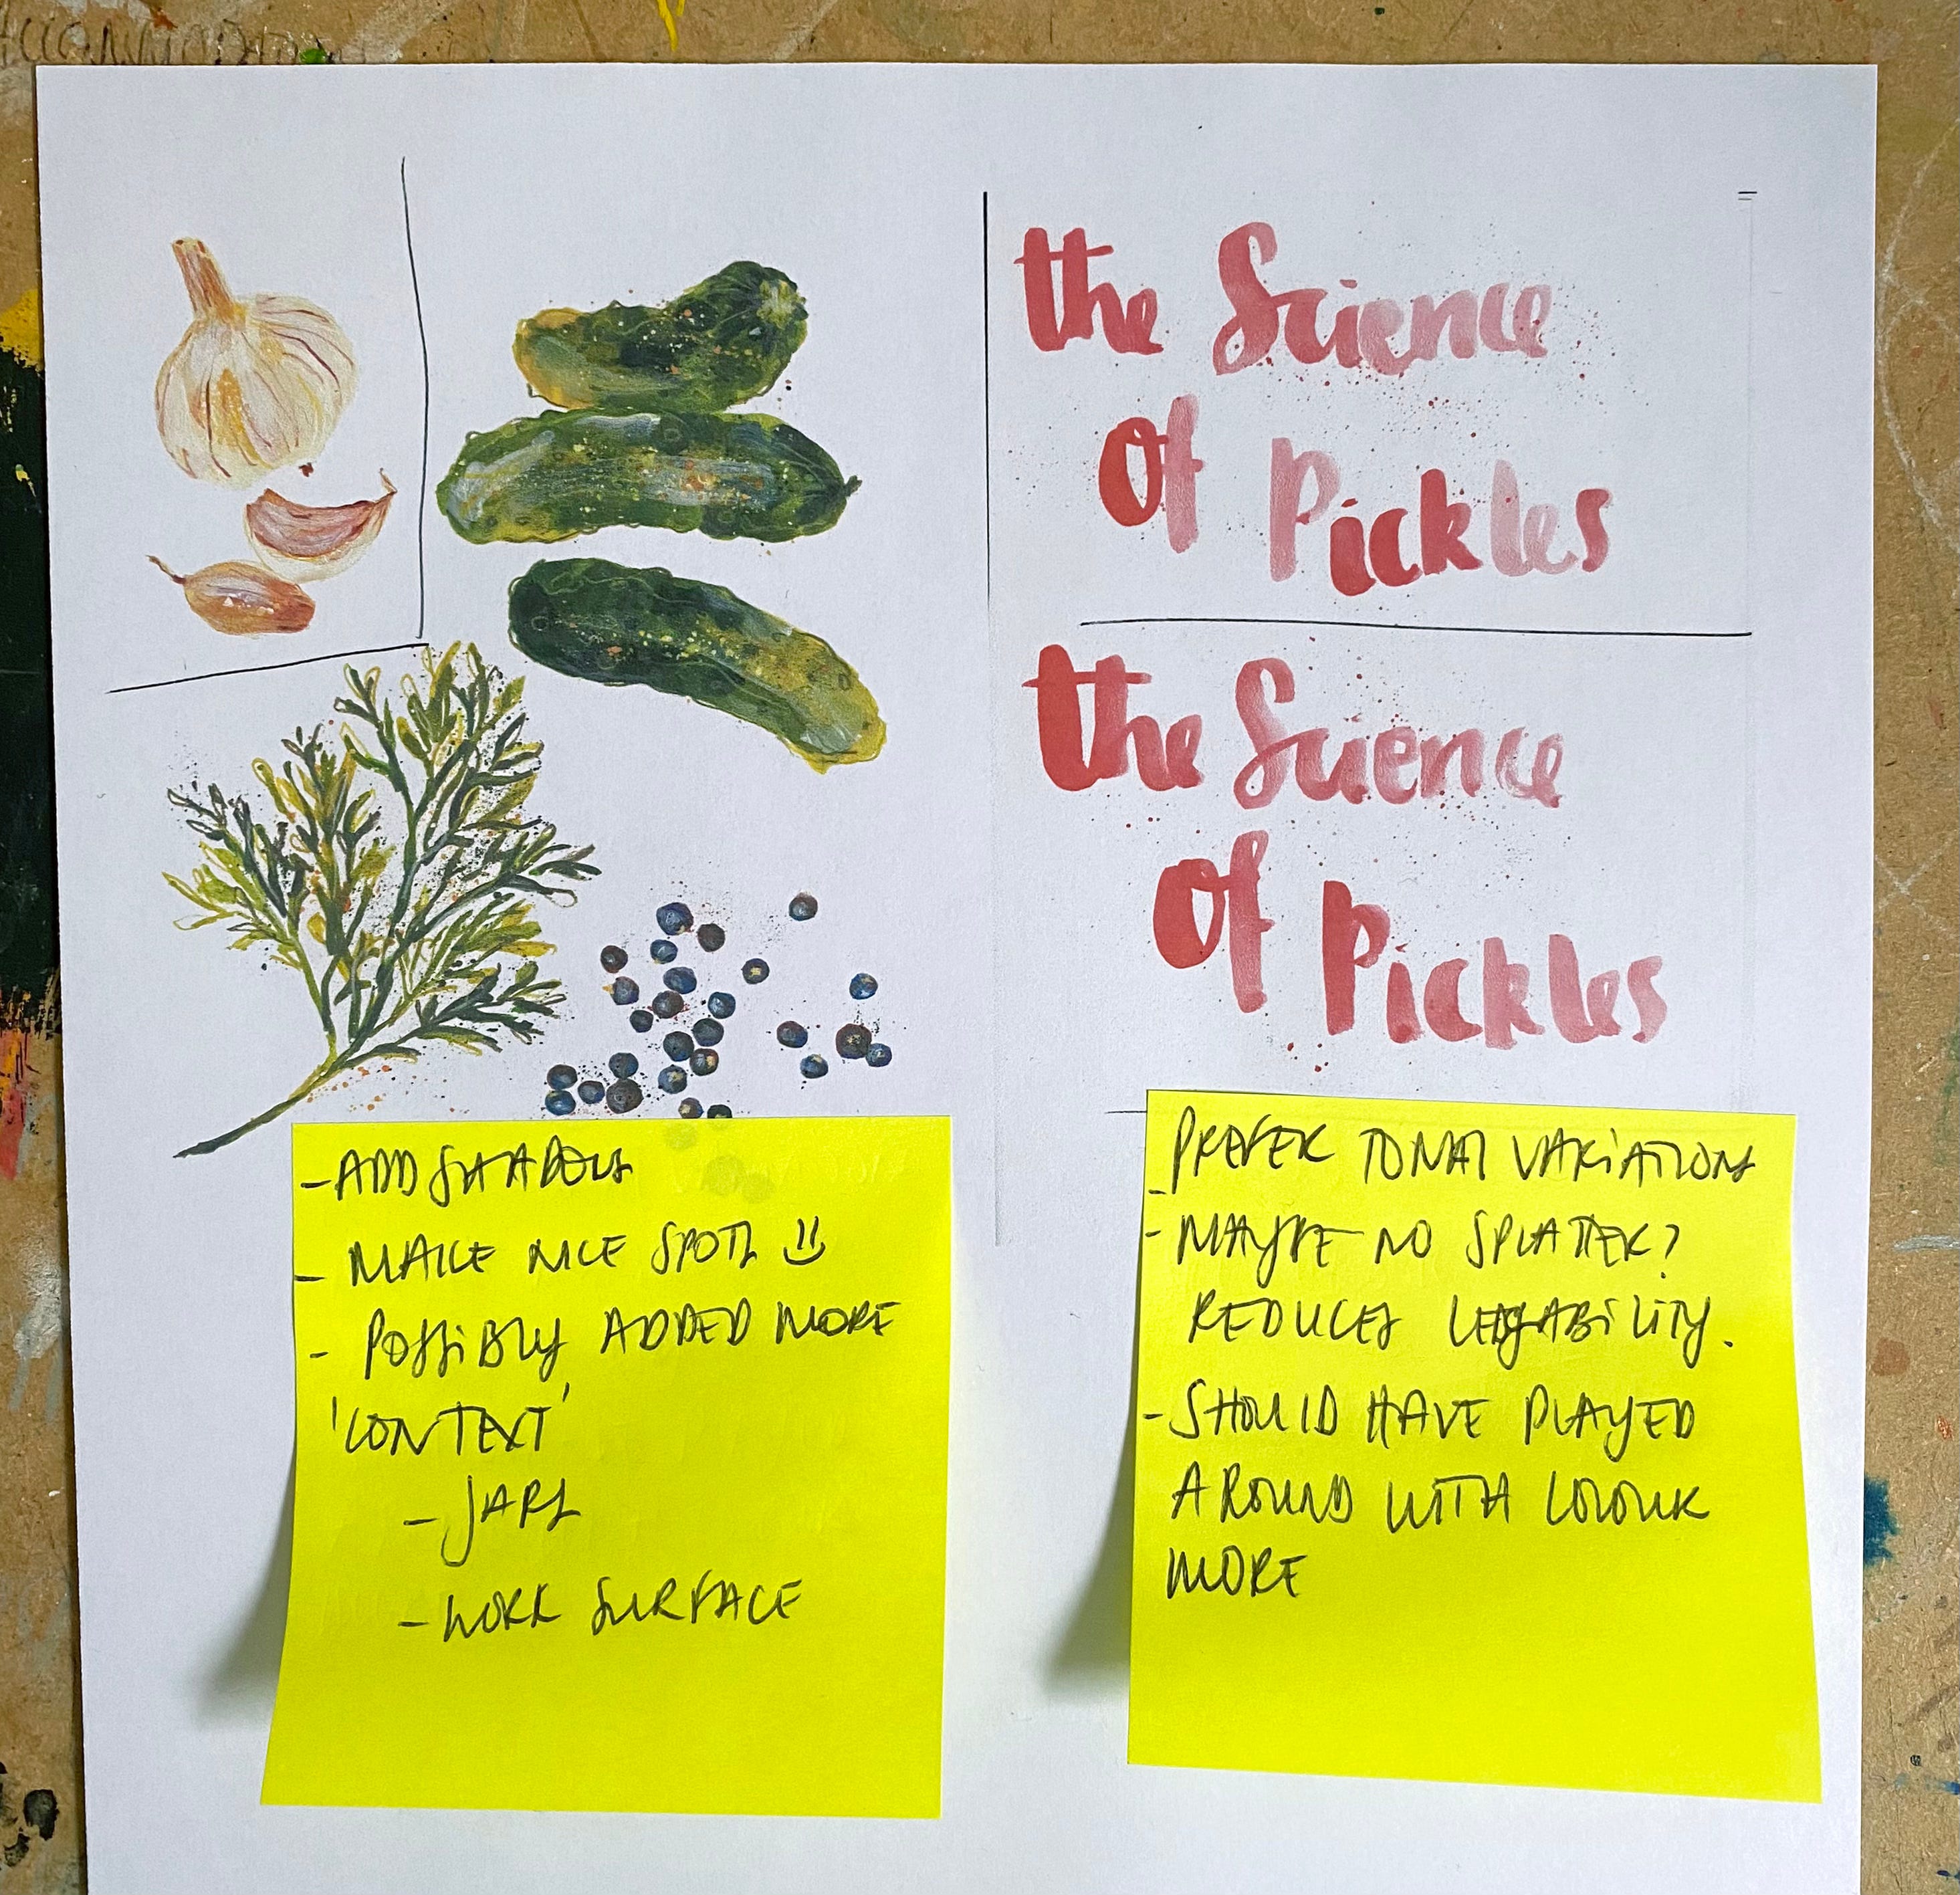 the Science
Of Pickles
the Science
Of Pickles
- ADD SHADOWS
- MAKE NICE SPOTS
- POSSIBLY ADDED MORE
'CONTEXT'
- JARS
- WORK SURFACE
- PREFER TONAL VARIATIONS
- MAYBE NO SPLATTER?
REDUCES
- SHOULD HAVE PLAYED
AROUND WITH COLOUR
MORE